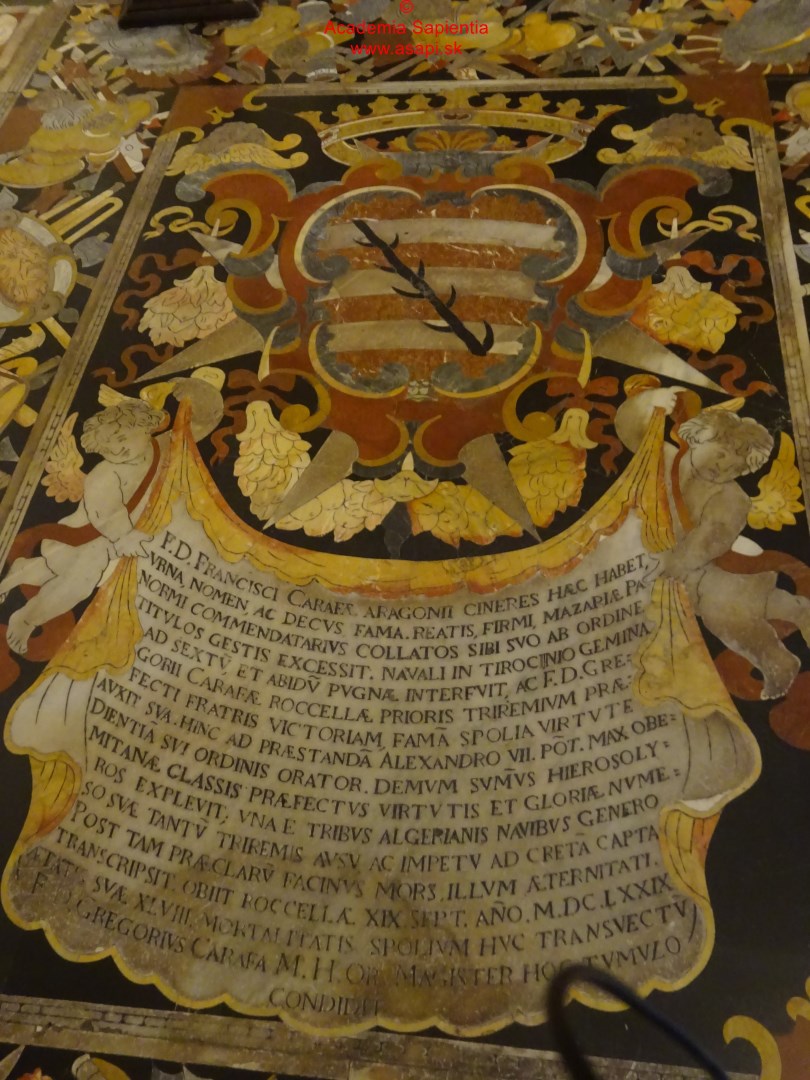 ©
Academia Sapientia
www.asapi.sk
F.D. FRANCISCI CARAFÆ ARAGONII CINERES HÆC HABET,
VRNA NOMEN, AC DECVS FAMA. REATIS, FIRMI, MAZAPIÆ PA⸗
NORMI COMMENDATARIVS COLLATOS SIBI SVO AB ORDINE
TITVLOS GESTIS EXCESSIT. NAVALI IN TIROCINIO GEMINA
AD SEXTŨ ET ABIDŨ PVGNÆ INTERFVIT, AC F.D. GRE⸗
GORII CARAFÆ ROCCELLÆ PRIORIS TRIREMIVM PRÆ⸗
FECTI FRATRIS VICTORIAM, FAMÃ SPOLIA VIRTVTE
AVXIT SVA. HINC AD PRÆSTANDÃ ALEXANDRO VII. PÕT. MAX. OBE⸗
DIENTIÃ SVI ORDINIS ORATOR. DEMVM SVM̃VS HIEROSOLY⸗
MITANÆ CLASSIS PRÆFECTVS VIRTVTIS ET GLORIÆ NVME⸗
ROS EXPLEVIT; VNA E TRIBVS ALGERIANIS NAVIBVS GENERO
SO SVÆ TANTŨ TRIREMIS AVSV AC IMPETV AD CRETÃ CAPTA
POST TAM PRÆCLARŨ FACINVS MORS, ILLVM ÆTERNITATI
TRANSCRIPSIT. OBIIT ROCCELLÆ XIX SEPT. AÑO. M.DC.LXXIX
ÆTATIS SVÆ XLVIII. MORTALITATIS SPOLIVM HVC TRANSVECTŨ
F. GREGORIVS CARAFA M. H. OR. MAGISTER HOC TVMVLO
CONDIDIT